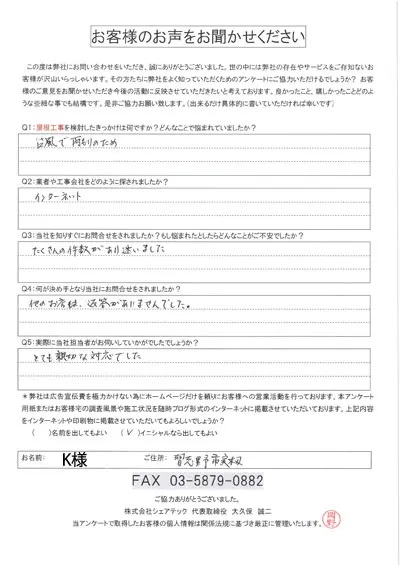 お客様のお声をお聞かせください
この度は弊社にお問い合わせをいただき、誠にありがとうございました。世の中には弊社の存在やサービスをご存知ないお
客様が沢山いらっしゃいます。その方たちに弊社をよく知っていただくためのアンケートにご協力いただけるでしょうか? お客
様のご意見をお聞かせいただき今後の活動に反映させていただきたいと考えております。良かったこと、嬉しかったことどのよ
うな些細な事でも結構です。是非ご協力お願い致します。(出来るだけ具体的に書いていただければ幸いです)
Q1:屋根工事を検討したきっかけは何ですか?どんなことで悩まれていましたか?
台風で雨漏りのため
Q2:業者や工事会社をどのように探されましたか?
インターネット
Q3:当社を知りすぐにお問合せをされましたか?もし悩まれたとしたらどんなことがご不安でしたか?
たくさんの件数があり迷いました
Q4:何が決め手となり当社にお問合せをされましたか?
他のお店は、返答がありませんでした。
Q5:実際に当社担当者がお伺いしていかがでしたでしょうか?
とても親切な対応でした
*弊社は広告宣伝費を極力かけない為にホームページだけを頼りにお客様への営業活動を行っております。本アンケート
用紙またはお客様宅の調査風景や施工状況を随時ブログ形式のインターネットに掲載させていただいております。上記内容
をインターネットや印刷物に掲載させていただいてもよろしいでしょうか?
( )名前を出してもよい (✓)イニシャルなら出してもよい
お名前: K様 ご住所: 習志野市実籾
FAX 03-5879-0882
ご協力ありがとうございました。
株式会社シェアテック 代表取締役 大久保 誠二
当アンケートで取得したお客様の個人情報は関係法規に基づき厳正に管理いたします。
岡野